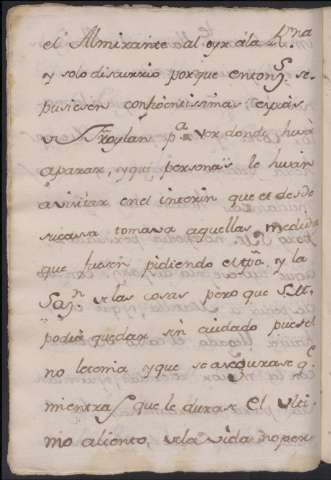 el Almirante al oyr a la Rna
y solo discurrio porque entonz se
pusiesen confidentissimas espias
a Froylan pa ver donde hiva
aparar, y que personas le hivan
a visitar en el interin que el desde
su cassa tomava aquellas medidas
que fuesen pidiendo el tpo y la
Sazn de las cosas pero que S.M.
podia quedar sin cuidado pues el
no le tenia y que se asegurase qe
mientras que le durase el ulti
mo aliento, de la vida no per